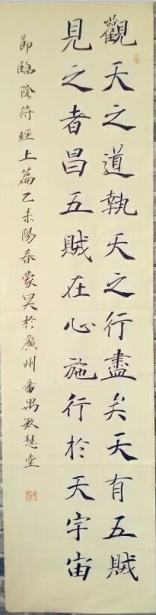 觀天之道執天之行盡矣天有五賊
見之者昌五賊在心施行於天宇宙
節臨陰符經上篇乙未陽春蒙昊於廣州番禺敏慧堂